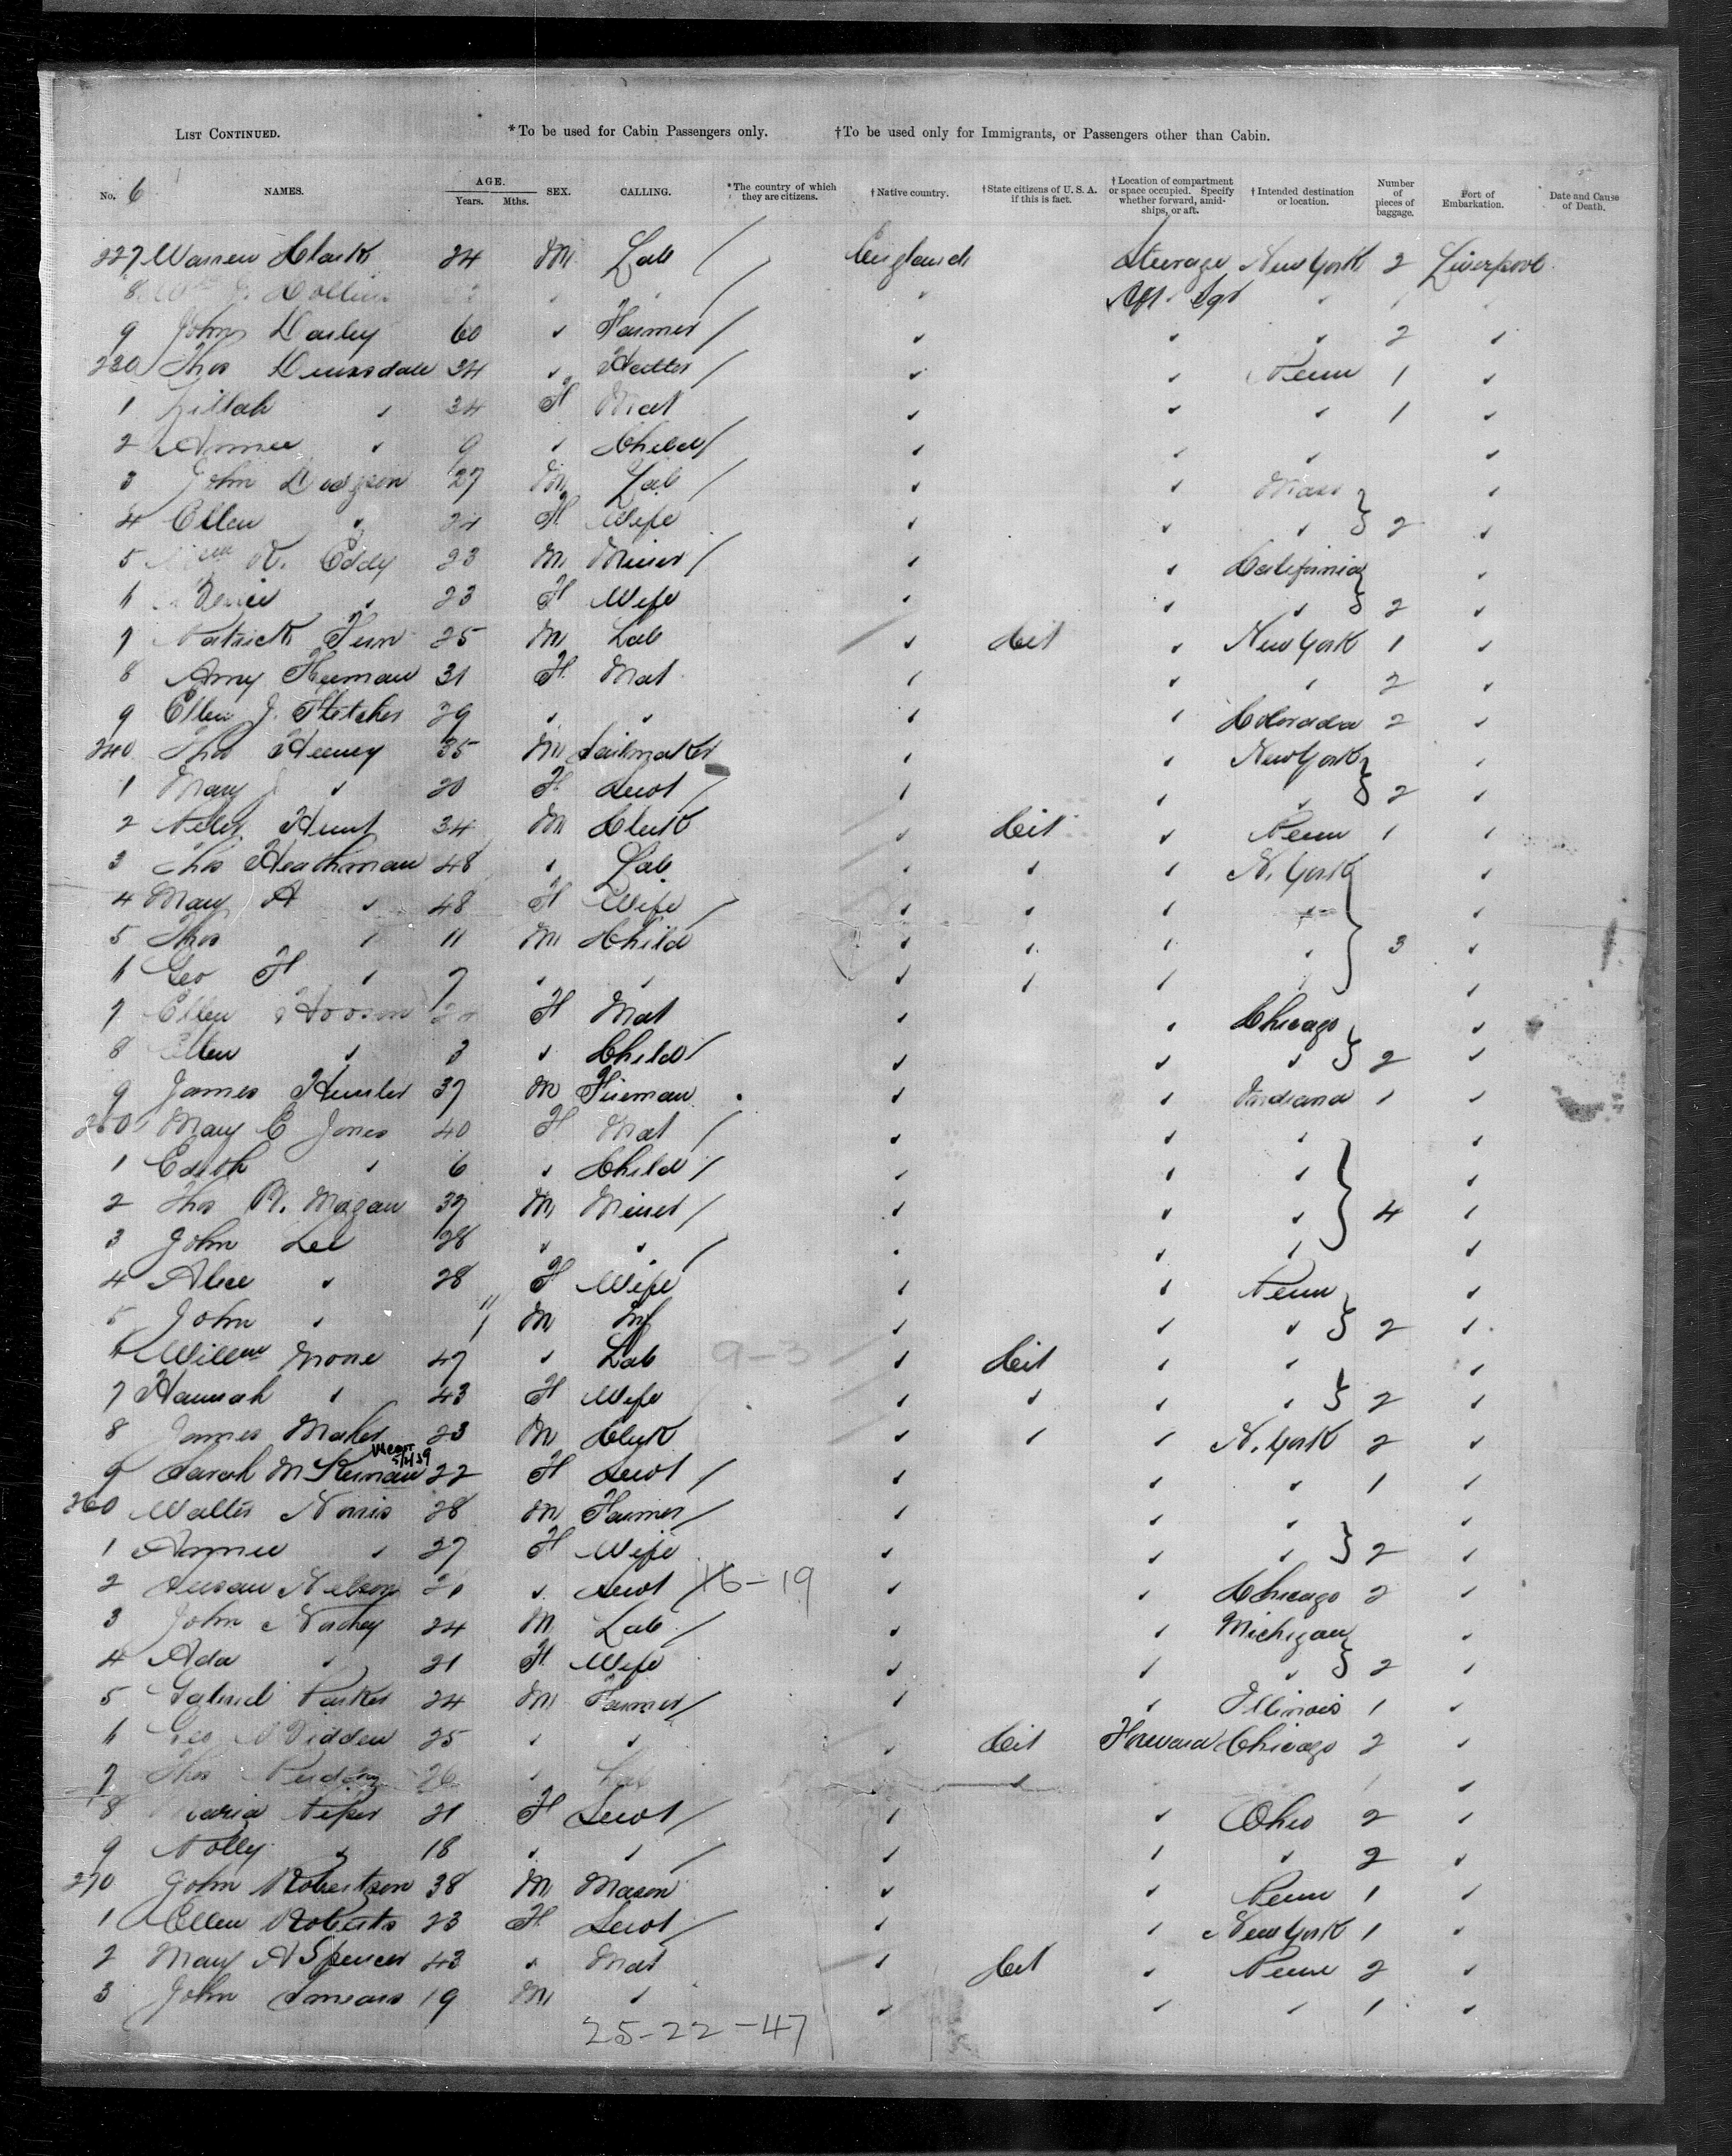 LIST CONTINUED. *To be used for Cabin Passengers only. †To be used only for Immigrants, or Passengers other than Cabin.
No. 6 NAMES. AGE. Years. Mths. SEX. CALLING. *The country of which they are citizens. †Native country. †State citizens of U. S. A. if this is fact. †Location of compartment or space occupied. Specify whether forward, amidships, or aft. †Intended destination or location. Number of pieces of baggage. Port of Embarkation. Date and Cause of Death.
227 Warren Clark 24 M Lab / England Steerage New York 2 Liverpool
8 Collins / " Aft " 1
9 John Darley 60 " Farmer / " " " 2 "
230 Thos Dinsdale 34 " / " " Penn 1 "
1 Zillah " 34 F Mat " " " 1 "
2 Annie " 9 " Child / " " " "
3 John Dodgson 27 M Lab / " " Mass "
4 Ellen " 24 F Wife " " " 2 "
5 Eddy 23 M Miner / " " California "
6 " 23 F Wife " " " 2 "
7 Patrick Finn 25 M Lab " Cit " New York 1 "
8 Amy 31 F Mat " " " 2 "
9 Ellen J. Fletcher 29 " " " " Colorado 2 "
240 Thos Heeney 35 M Sailmaker " " New York "
1 Mary J " 20 F Servt / " " " 2 "
2 Peter Hunt 34 M Clerk " Cit " Penn 1 "
3 Thos Heathman 48 " Lab " " " N. York "
4 Mary A " 48 F Wife / " " " " "
5 Thos " 11 M Child " " " " 3 "
6 Geo H " 7 " " " " " " "
7 Ellen Hooson F Mat " " Chicago "
8 Ellen " 3 " Child / " " " 2 "
9 James Hunter 37 M Fireman " " Indiana 1 "
250 Mary E Jones 40 F Mat / " " " "
1 Edith " 6 " Child / " " " "
2 Thos R. Magan 32 M Miner / " " " 4 "
3 John Lee 28 " " / " " " "
4 Alice " 28 F Wife " " Penn "
5 John " 11 M Inf " " " 2 "
6 Willm Morse 47 " Lab 9-3 " Cit " " "
7 Hannah " 43 F Wife " " " " 2 "
8 James Maher 23 M Clerk " " " N. York 2 "
9 Sarah McKiernan 22 F Servt / " " " 1 "
260 Walter Norris 28 M Farmer / " " " "
1 Annie " 27 F Wife " " " 2 "
2 Susan Nelson " Servt / 16-19 " " Chicago 2 "
3 John 24 M Lab / " " Michigan "
4 Ada " 21 F Wife " " " 2 "
5 Gabriel Parker 24 M Farmer / " " Illinois 1 "
6 Geo 25 " " " Cit Forward Chicago 2 "
7 Thos 26 " Lab " 1 "
8 Maria Piper 21 F Servt / " " Ohio 2 "
9 Polly " 18 " " / " " " 2 "
270 John Robertson 38 M Mason " " Penn 1 "
1 Ellen Roberts 23 F Servt / " " New York 1 "
2 Mary A Spencer 43 " Mat " Cit " Penn 2 "
3 John 19 M " " " " 1 "
25-22-47